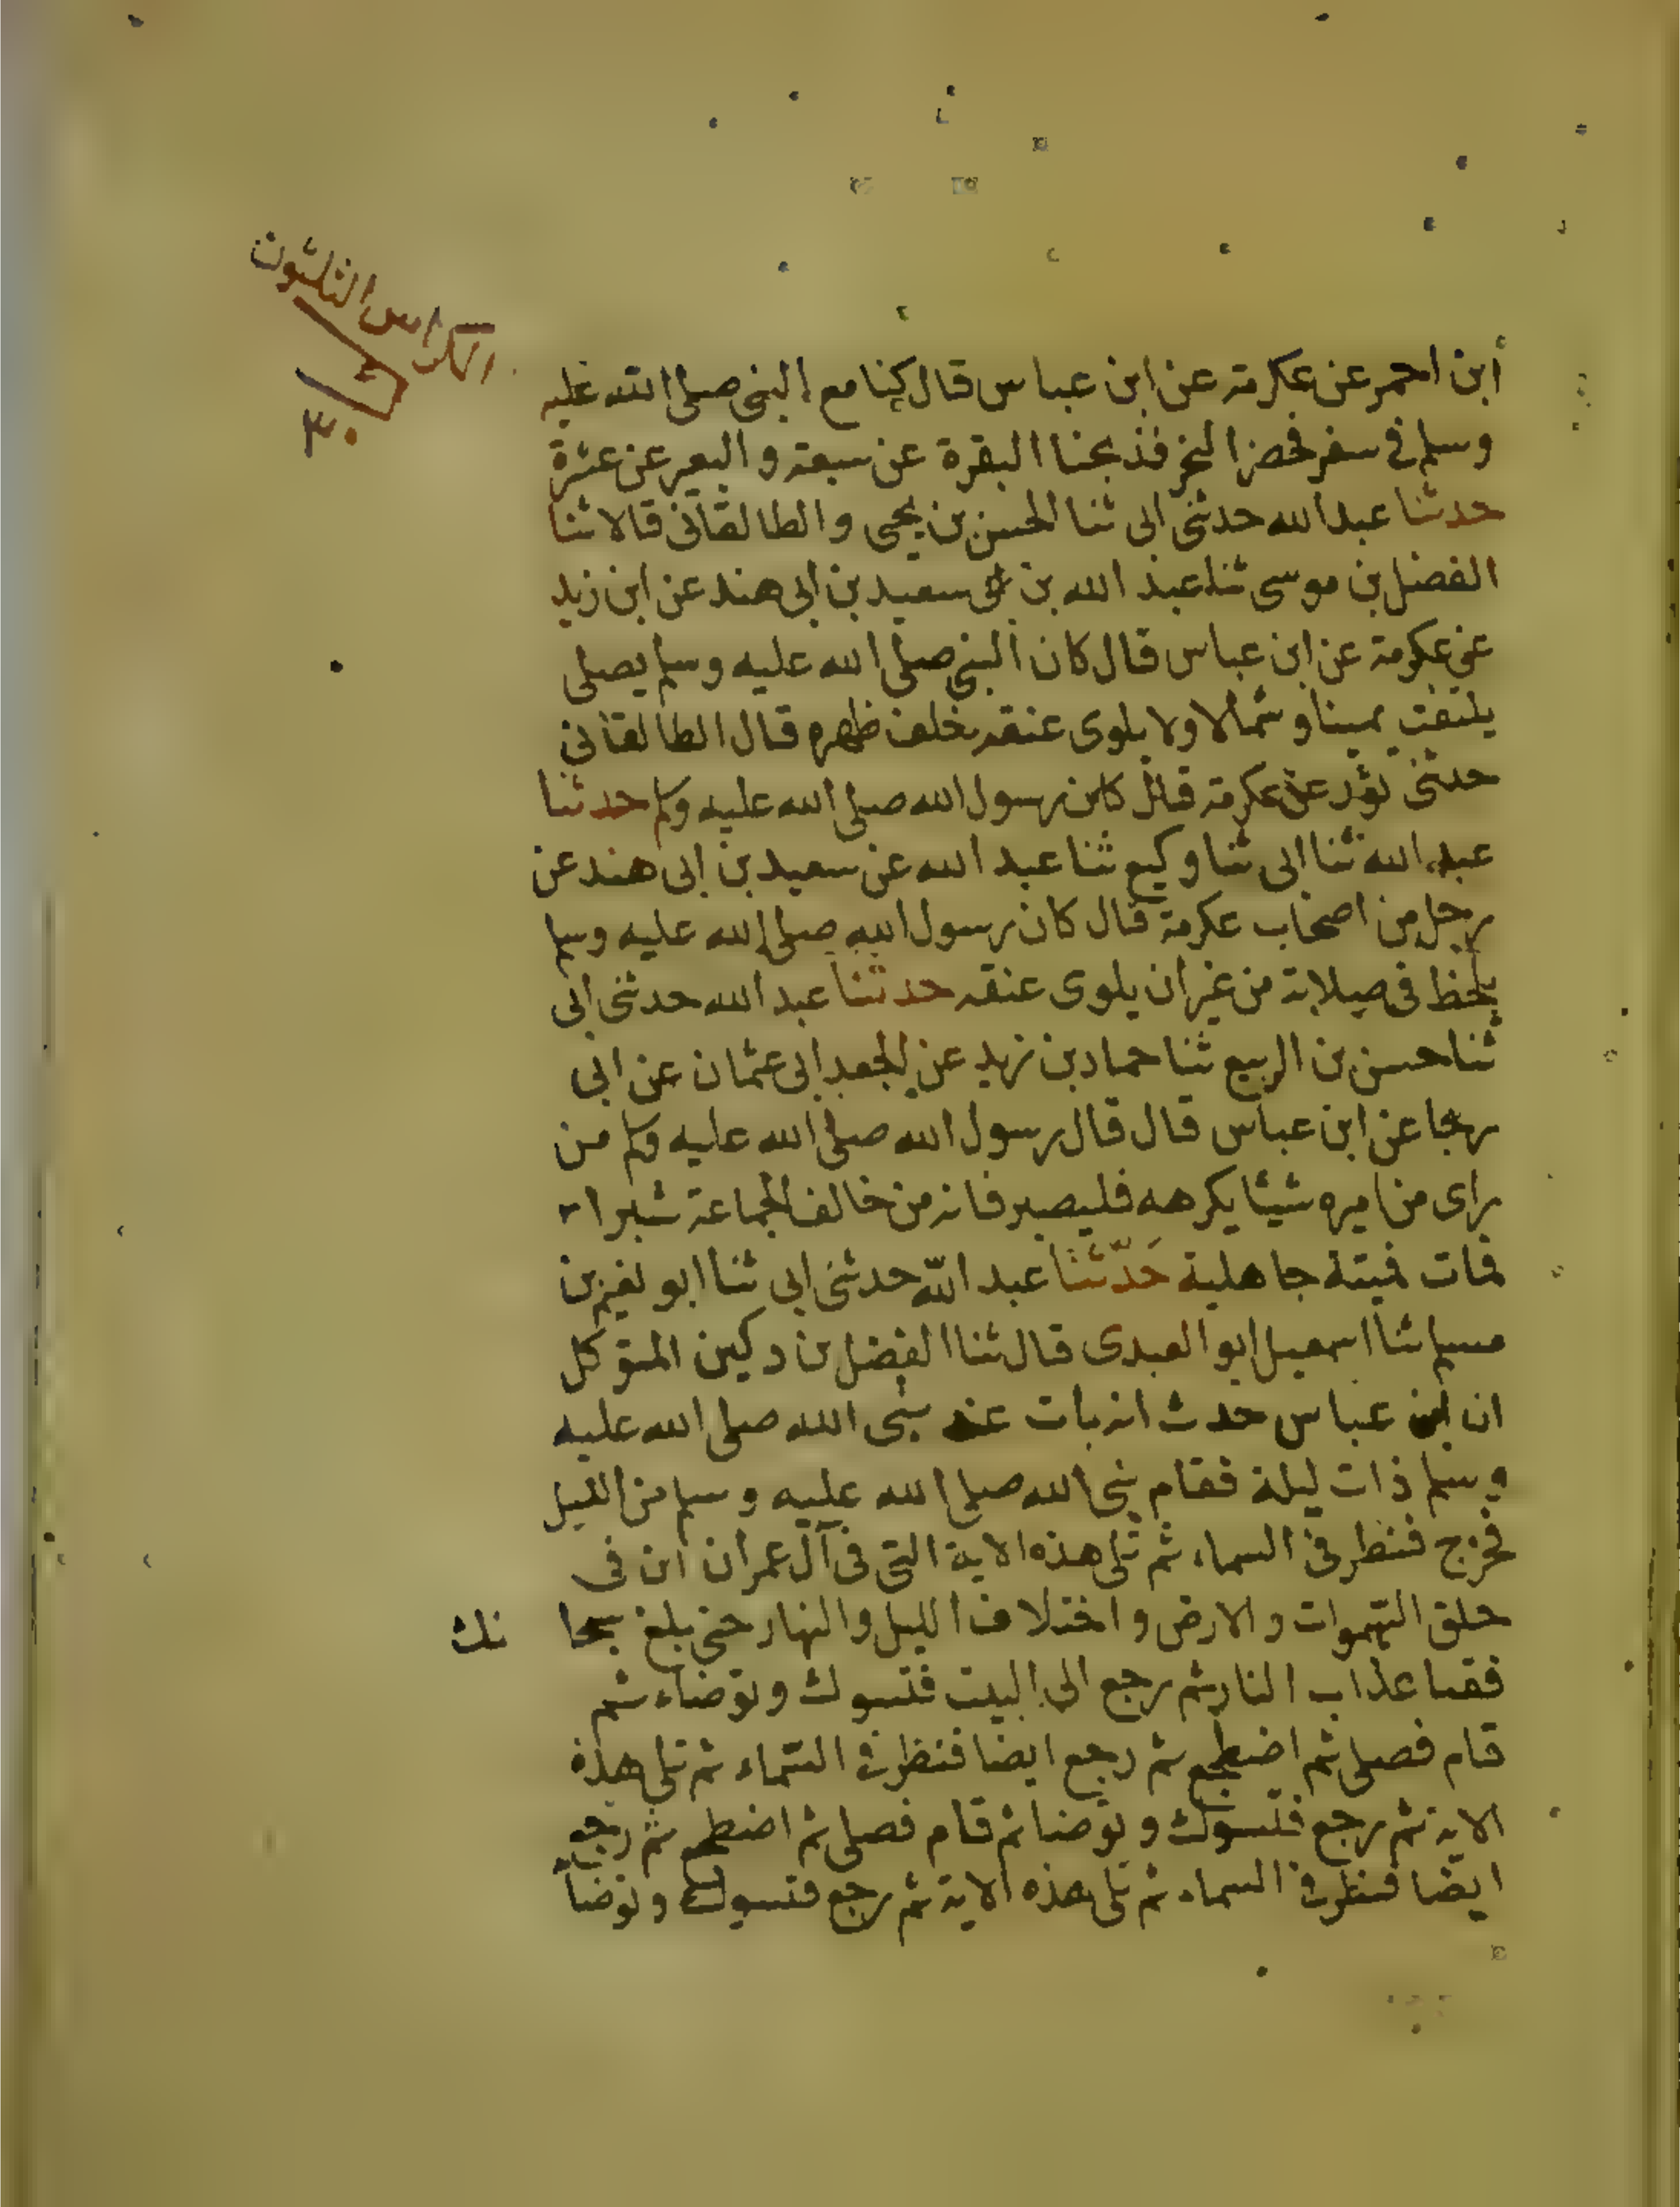 الكراس الثلثون
٣٠
أبن احمر عن عكرمة عن ابن عباس قال كنا مع النبي صلى الله عليه
وسلم في سفر فحضر النحر فذبحنا البقرة عن سبعة والبعير عن عشرة
حدثنا عبد الله حدثني ابي ثنا الحسن بن يحيى والطالقاني قالا ثنا
الفضل بن موسى ثنا عبد الله بن سعيد بن ابي هند عن ابن زيد
عن عكرمة عن ابن عباس قال كان النبي صلى الله عليه وسلم يصلى
يلتفت يمينا وشمالا ولا يلوى عنقه خلف ظهره قال الطالقاني
حدثني ثور عن عكرمة قال كان رسول الله صلى الله عليه وسلم حدثنا
عبد الله ثنا ابي ثنا وكيع ثنا عبد الله عن سعيد بن ابي هند عن
رجل من اصحاب عكرمة قال كان رسول الله صلى الله عليه وسلم
يلحظ في صلاته من غير ان يلوى عنقه حدثنا عبد الله حدثني ابي
ثنا حسن بن الربيع ثنا حماد بن زيد عن الجعد ابي عثمان عن ابي
رجا عن ابن عباس قال قال رسول الله صلى الله عليه وسلم من
راى من اميره شيئا يكرهه فليصبر فانه من خالف الجماعة شبرا
فمات فميتة جاهلية حَدّثنا عبد اللّه حدثني ابي ثنا ابو نعيم بن
مسلم ثنا اسمعيل ابو العبدى قال ثنا الفضل بن دكين المتوكل
ان ابن عباس حدث انه بات عند نبي الله صلى الله عليه
وسلم ذات ليلة فقام نبي الله صلى الله عليه وسلم من الليل
فخرج فنظر في السماء ثم تلى هذه الاية التي في آل عمران ان في
خلق السموات والارض واختلاف الليل والنهار حتى بلغ سبحا نك
فقنا عذاب النار ثم رجع الى البيت فتسوك وتوضاء ثم
قام فصلى ثم اضطجع ثم رجع ايضا فنظر في السماء ثم تلى هذه
الاية ثم رجع فتسوك وتوضا ثم قام فصلى ثم اضطجع ثم رجع
ايضا فنظر في السماء ثم تلى هذه الاية ثم رجع فتسوك وتوضأ